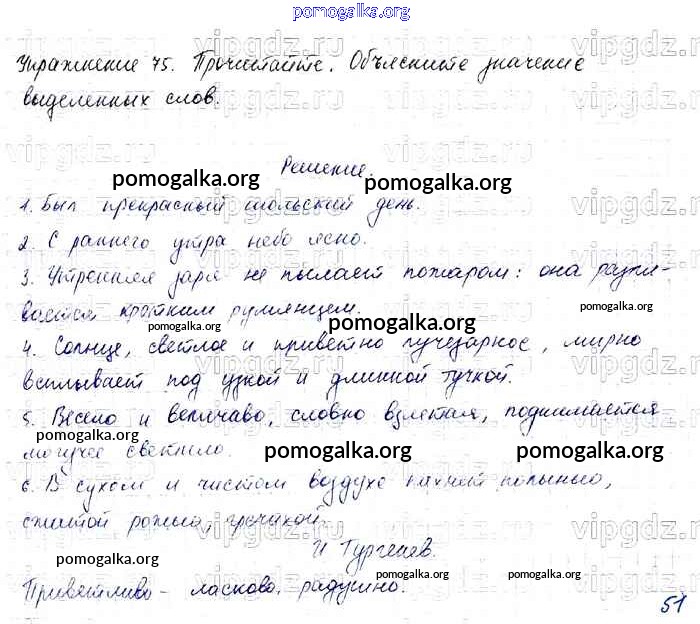 pomogalka.org
Упражнение 75. Прочитайте. Объясните значение
выделенных слов.
Решение.
pomogalka.org pomogalka.org
1. Был прекрасный июльский день.
2. С раннего утра небо ясно.
3. Утренняя заря не пылает пожаром: она разли-
вается кротким румянцем.
pomogalka.org pomogalka.org pomogalka.org
4. Солнце, светлое и приветно лучезарное, мирно
всплывает под узкой и длинной тучкой.
5. Весело и величаво, словно взлетая, поднимается
pomogalka.org pomogalka.org pomogalka.org
могучее светило.
6. В сухом и чистом воздухе пахнет полынью,
сжатой рожью, гречихой.
И Тургенев.
pomogalka.org pomogalka.org pomogalka.org
Приветливо - ласково, радушно.
51
vipgdz.ru